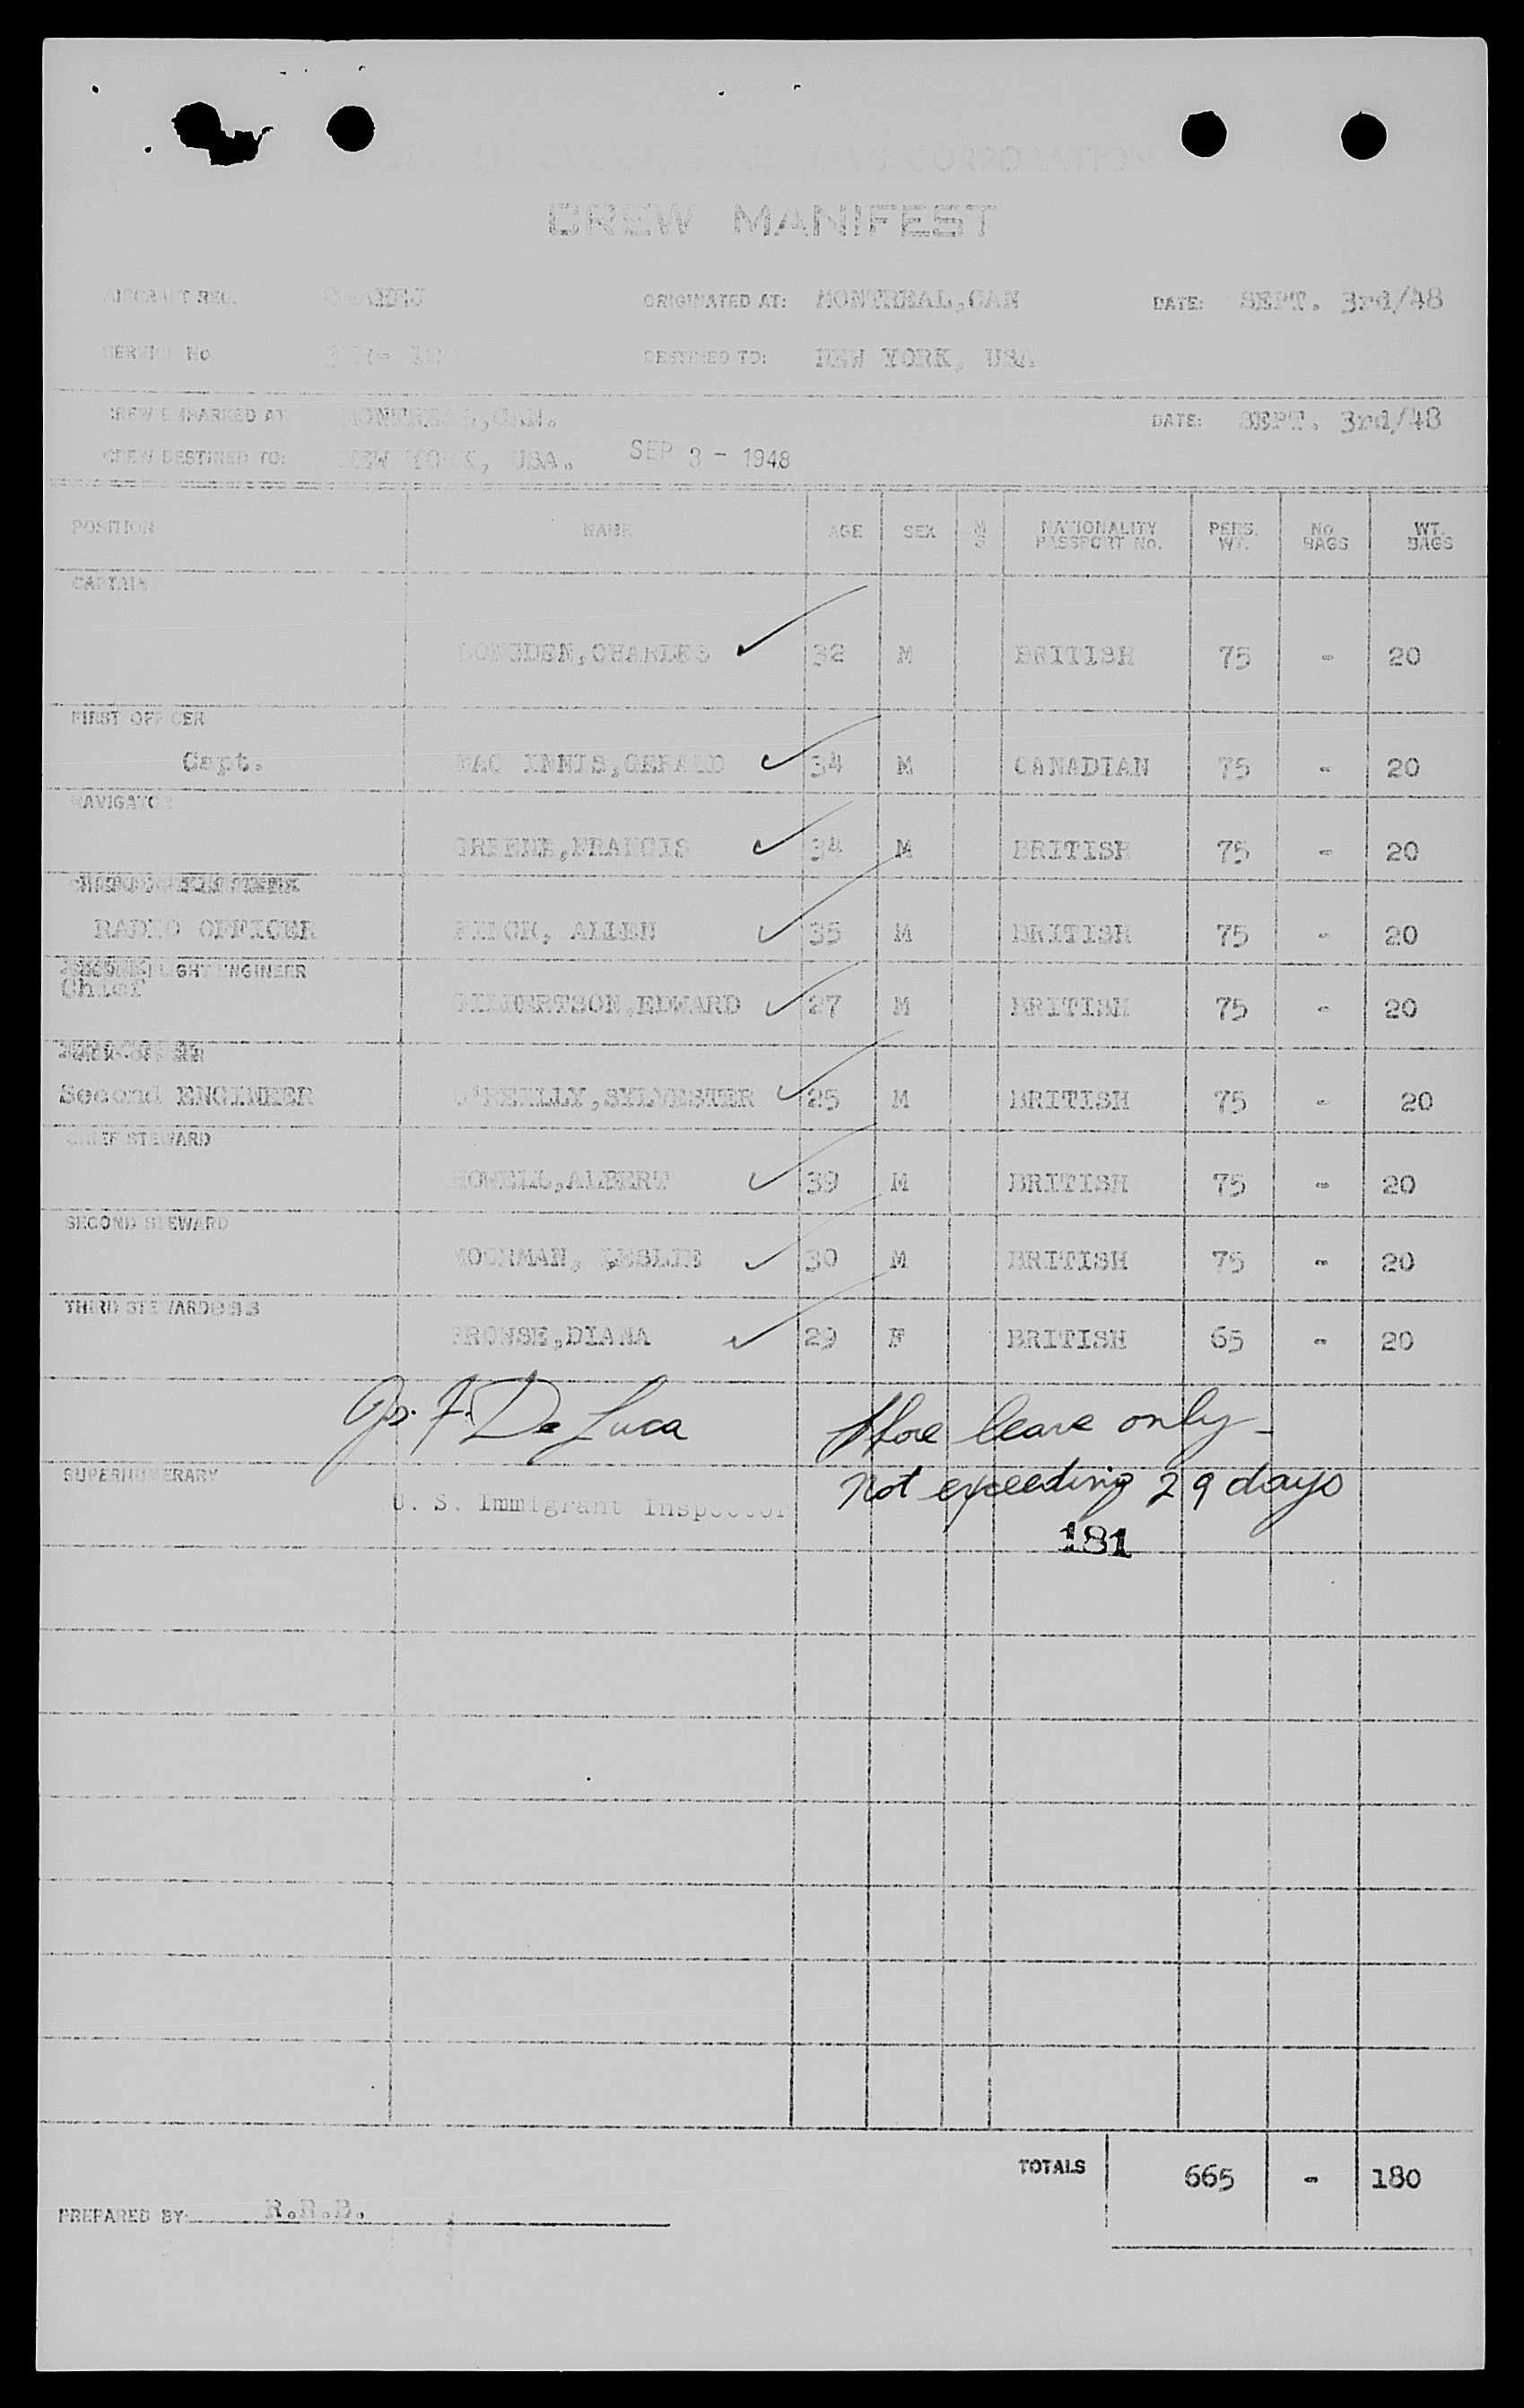 CREW MANIFEST
AIRCRAFT REG. ORIGINATED AT: MONTREAL,CAN DATE: SEPT. 3rd/48
SERVICE No DESTINED TO: NEW YORK, USA
CREW EMBARKED AT: MONTREAL,CAN. DATE: SEPT. 3rd/48
CREW DESTINED TO: NEW YORK, USA. SEP 3 - 1948
POSITION NAME AGE SEX M S NATIONALITY PASSPORT No. PERS. WT. No BAGS WT. BAGS
CAPTAIN
CHARLES 32 M BRITISH 75 - 20
FIRST OFFICER
Capt. MAC INNIS,GERALD 34 M CANADIAN 75 - 20
NAVIGATOR
GREENE,FRANCIS 34 M BRITISH 75 - 20
RADIO OFFICER FINCH, ALLEN 35 M BRITISH 75 - 20
FLIGHT ENGINEER
Chief EDWARD 27 M BRITISH 75 - 20
Second ENGINEER O'REILLY,SYLVESTER 25 M BRITISH 75 - 20
CHIEF STEWARD
HOWELL,ALBERT 39 M BRITISH 75 - 20
SECOND STEWARD
MOORMAN, LESLIE 30 M BRITISH 75 - 20
THIRD STEWARDess
PROWSE,DIANA 29 F BRITISH 65 - 20
De Luca leave only -
SUPERNUMERARY
U. S. Immigrant Inspector not exceeding 29 days
181
TOTALS 665 - 180
PREPARED BY: R.R.B.